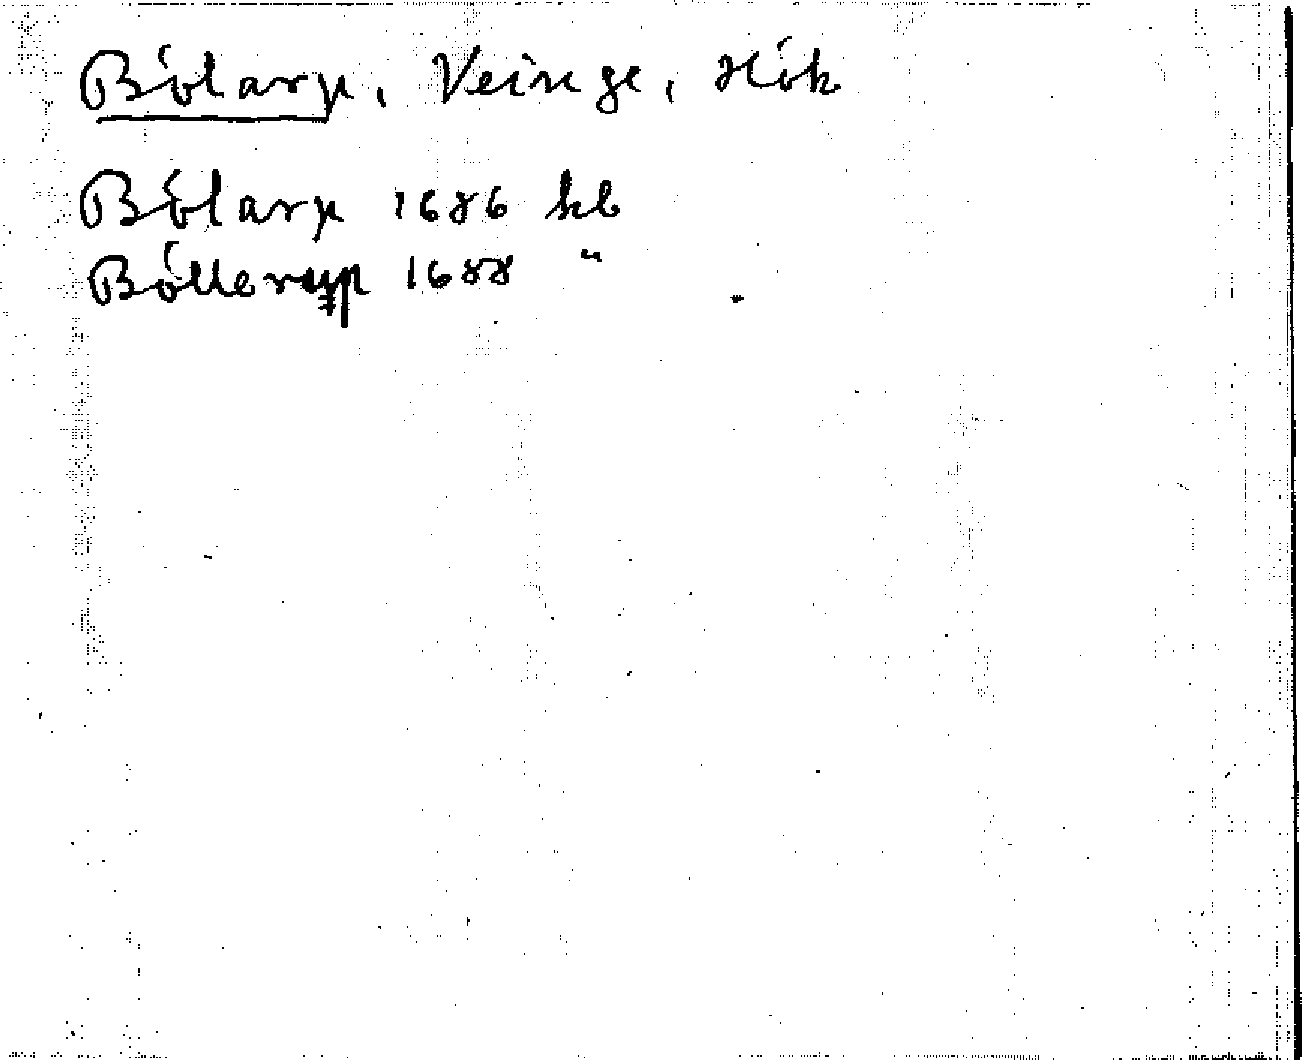 Bölarp, Veinge, Hök
Bölarp 1686 kb
Böllerup 1688 "